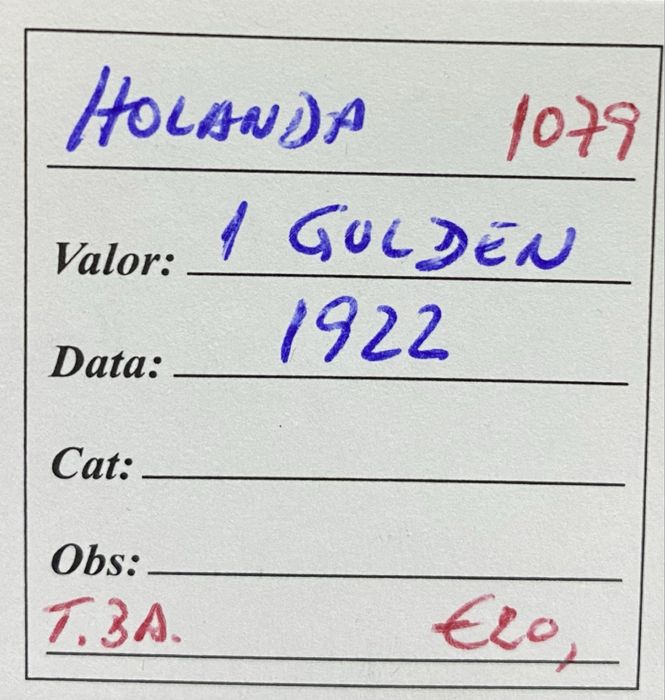 HOLANDA 1079
Valor: 1 GULDEN
Data: 1922
Cat:
Obs:
T.3A. €20,